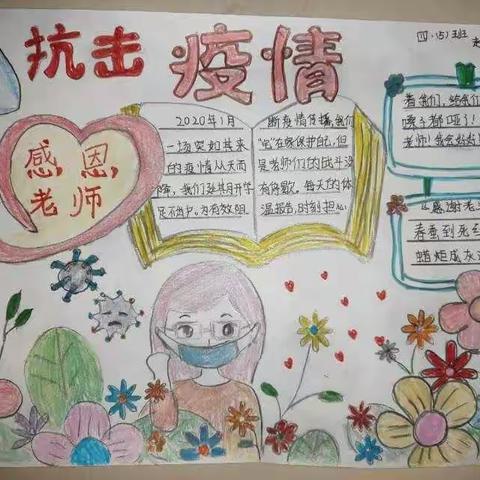 抗击疫情
四.(5)班
感恩
老师
2020年1月
一场突如其来
的疫情从天而
降,我们延其月开学
足不出户。为有效阻
断疫情传播,我们
宅在家保护自己,但
是老师们的战斗没
有停歇。每天的体
温报告,时刻担心
着我们,给我们
嗓子都哑了!
老师!我会好好
感谢老
春蚕到死
蜡炬成灰